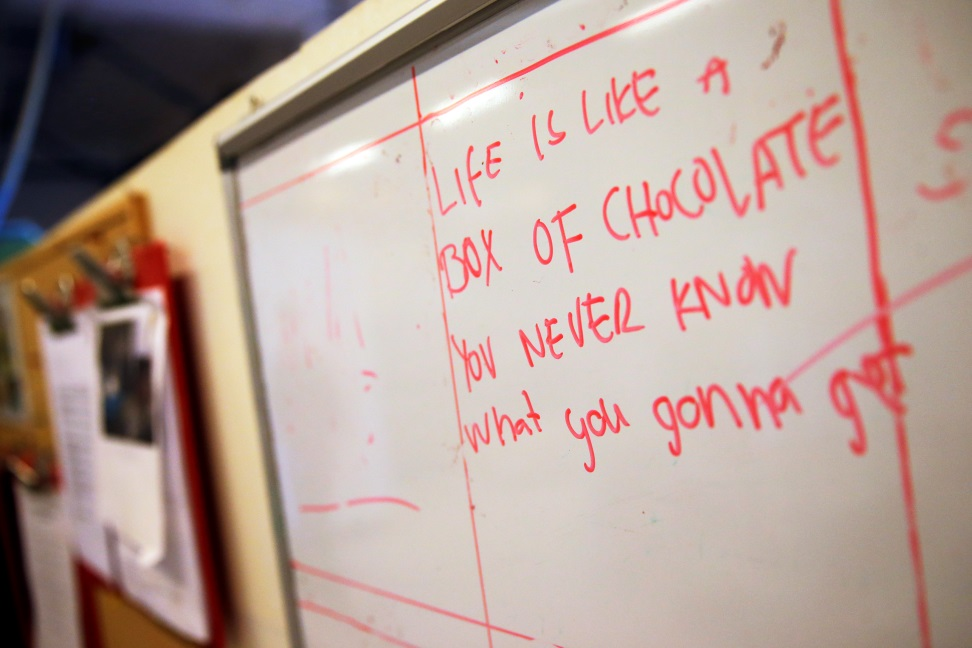 LIFE IS LIKE A
BOX OF CHOCOLATE
YOU NEVER KNOW
what you gonna get